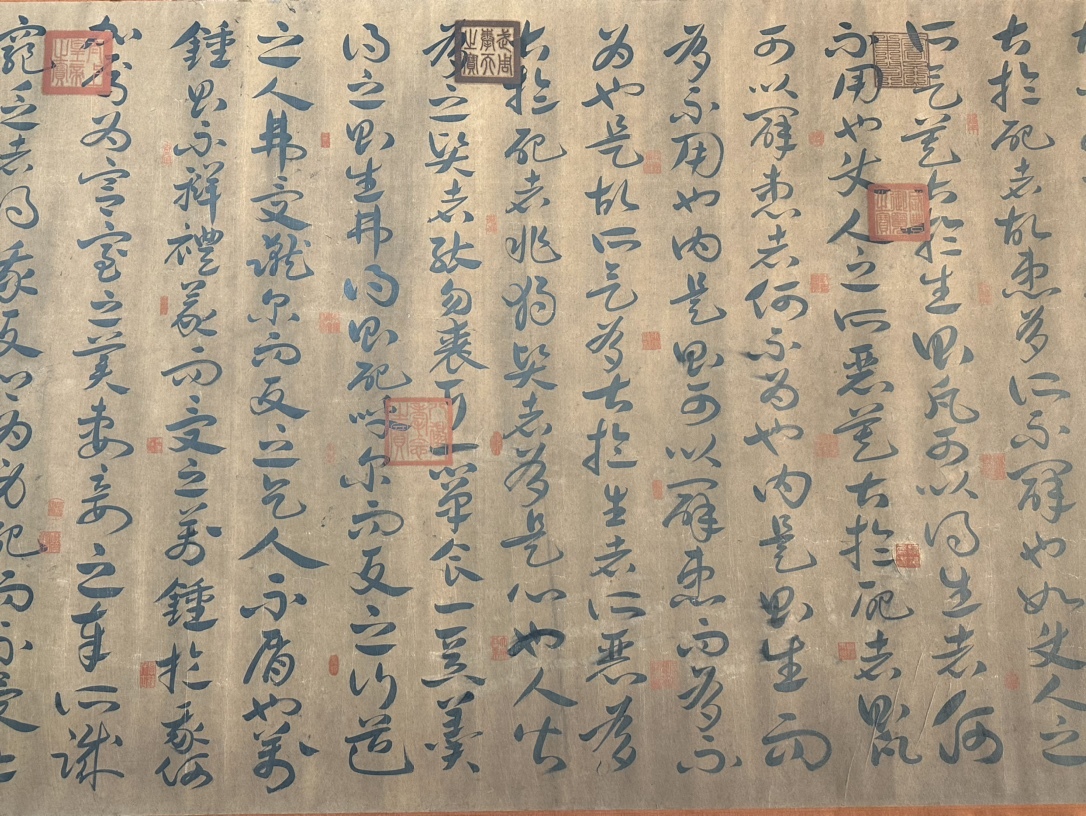 甚於死者故患有所不辟也如使人之
所欲莫甚於生則凡可以得生者何
不用也使人之所惡莫甚於死者則凡
可以辟患者何不為也由是則生而
有不用也由是則可以辟患而有不
為也是故所欲有甚於生者所惡有
甚於死者非獨賢者有是心也人皆
有之賢者能勿喪耳一簞食一豆羹
得之則生弗得則死嘑爾而與之行道
之人弗受蹴爾而與之乞人不屑也萬
鍾則不辨禮義而受之萬鍾於我何
加焉為宮室之美妻妾之奉所識
窮乏者得我與鄉為身死而不受